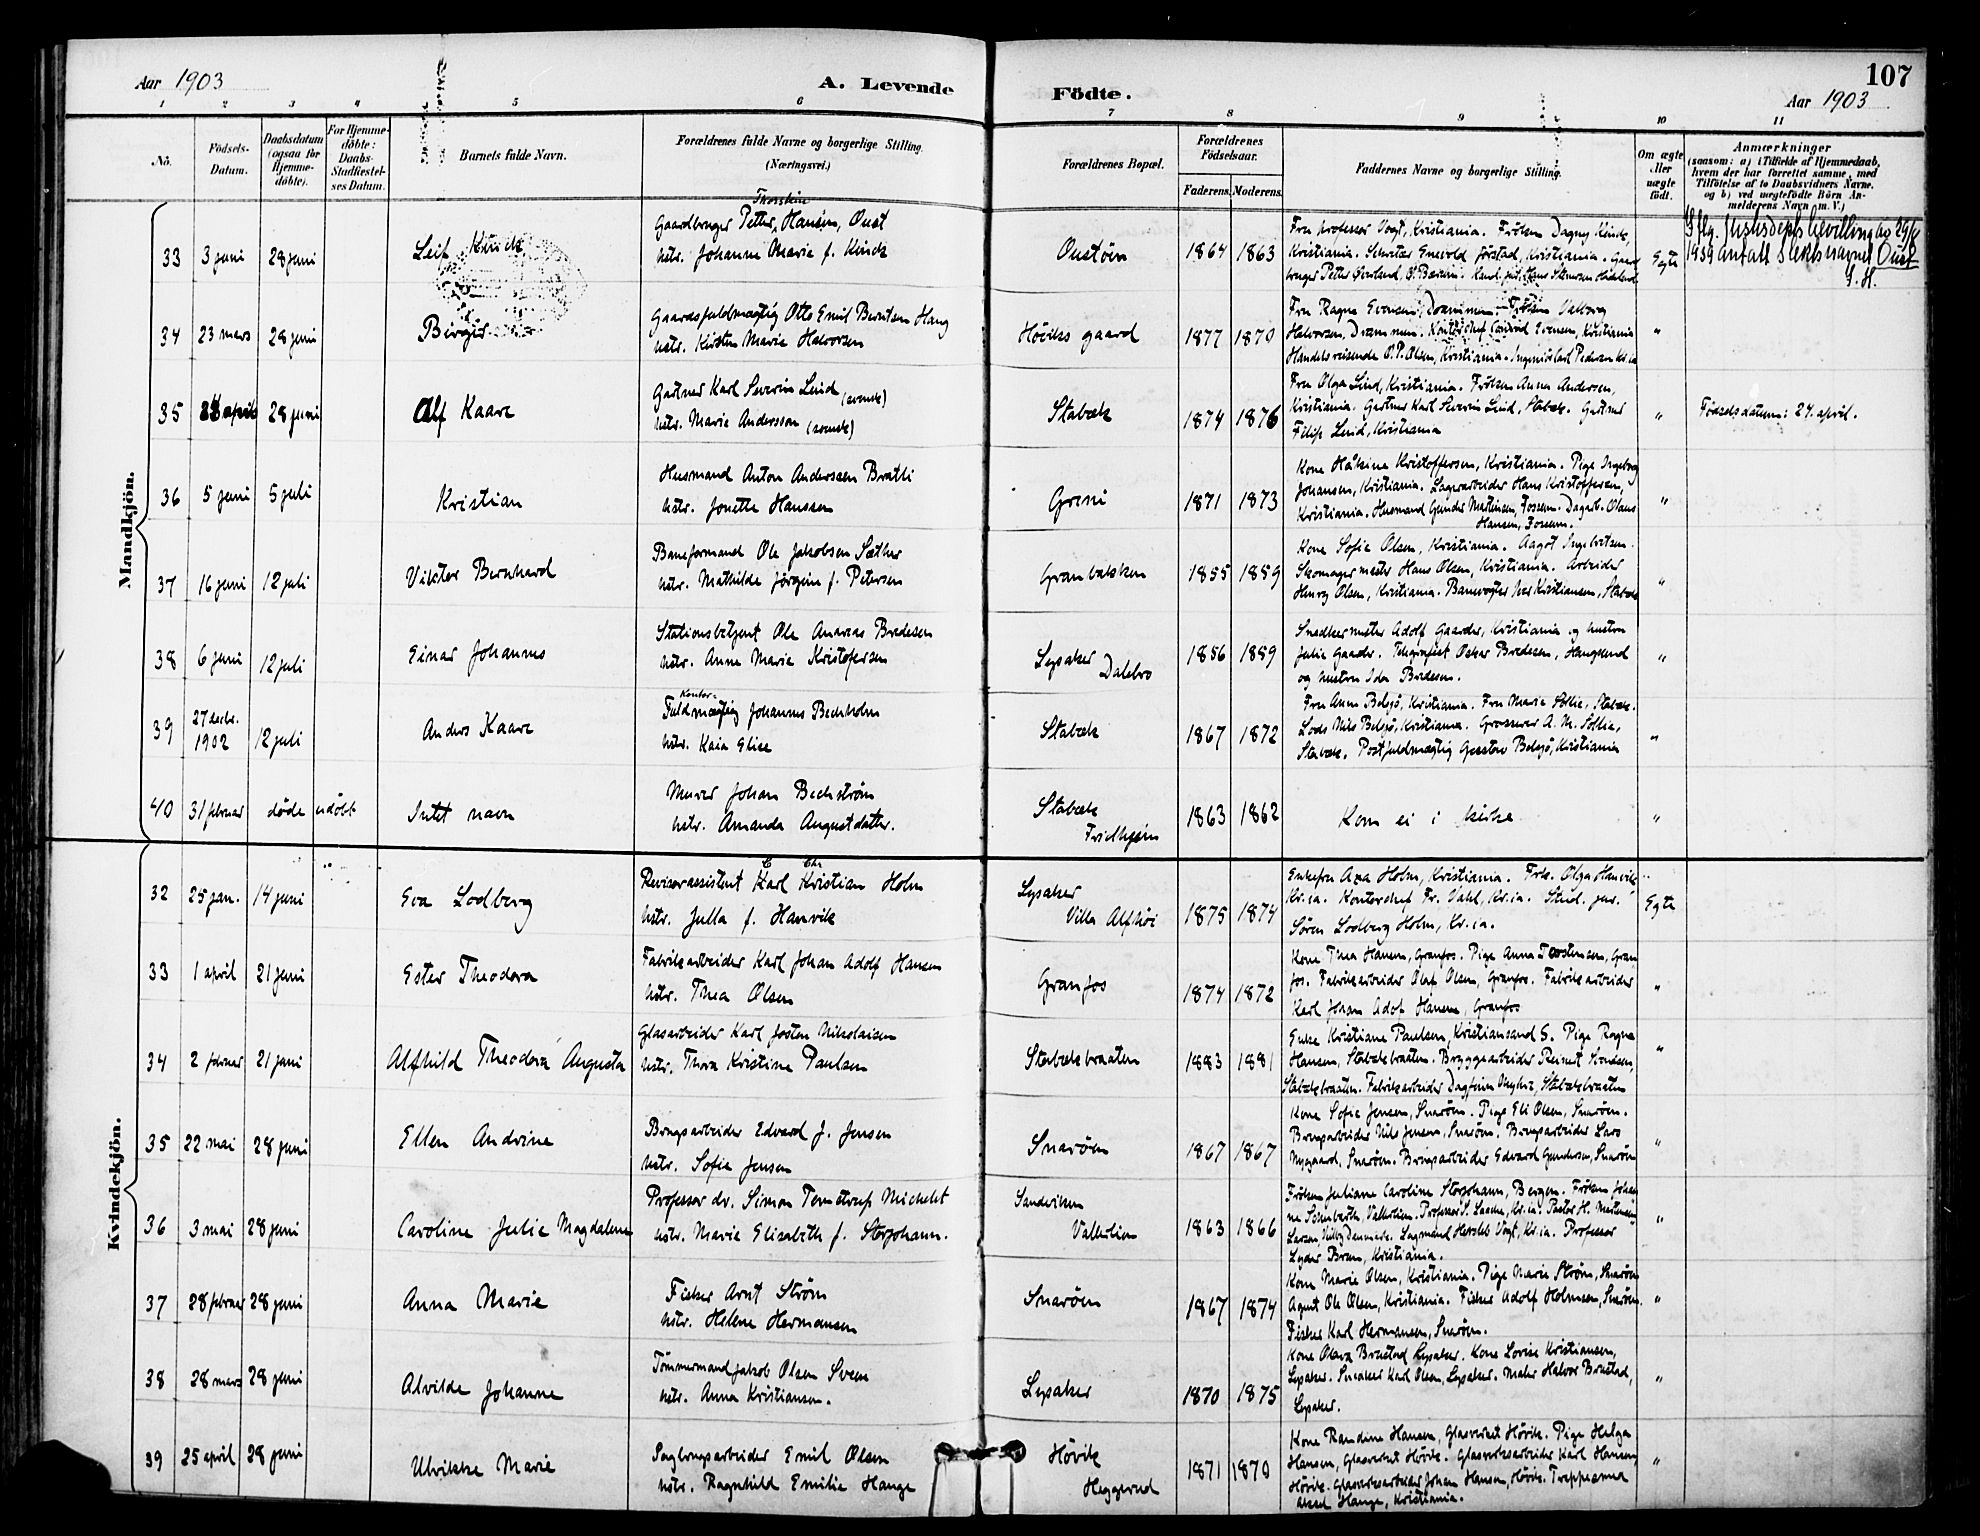 107
Aar 1903
A. Levende
Födte.
Aar 1903
1 2 3 4 5 6 7 8 9 10 11
No.
Födsels-
Datum.
Daabsdatum
(ogsaa for
Hjemme-
döbte).
For Hjemme-
döbte:
Daabs-
Stadfæstel-
ses Datum.
Barnets fulde Navn.
Forældrenes fulde Navne og borgerlige Stilling.
(Næringsvei.)
Forældrenes Bopæl.
Forældrenes
Födselsaar.
Faderens. Moderens.
Faddernes Navne og borgerlige Stilling.
Om ægte
eller
uægte
födt.
Anmærkninger
(saasom: a) i Tilfælde af Hjemmedaab,
hvem der har forrettet samme, med
Tilföielse af to Daabsvidners Navne,
og b) ved uægtefödte Börn An-
melderens Navn m. V.)
Mandkjön.
33 3 juni 28 juni
Leif Kinck
Thorstein
Gaardbruger Petter Hansen, Oust
hstr. Johanne Marie f. Kinck
Oustöen
1864 1863
Fru professor Vogt, Kristiania. Fröken Dagny Kinck,
Egte
1959 antatt slektsnavnet Oust
34 23 mars 28 juni
Birger
Gaardsfuldmægtig Otto Emil Berntsen Haug
hstr. Kirsten Marie Halvorsen
Höviks gaard
1877 1870
Fru Ragna Evensen, Drammen. Fröken Valborg
Halvorsen, Drammen. Kontorchef Conrad Evensen, Kristiania
Handelsreisende O. P. Olsen, Kristiania. Ingeniör Carl Pedersen Kr.ia
"
35 24 april 28 juni
Alf Kaare
Gartner Karl Severin Lind (svensk)
hstr. Marie Andersson (svensk)
Stabæk
1874 1876
Fru Olga Lind, Kristiania. Fröken Anna Andersen,
Kristiania. Gartner Karl Severin Lind, Stabæk. Gartner
Filip Lind, Kristiania
"
Födselsdatum: 24. april.
36 5 juni 5 juli
Kristian
Husmand Anton Anderssen Bratli
hstr. Jonette Hanssen
Grini
1871 1873
Kone Håkine Kristoffersen, Kristiania. Pige Ingeborg
Johansen, Kristiania. Lagerarbeider Hans Kristoffersen,
Kristiania. Husmand Gunder Martinsen, Fossum. Dagarb. Olaus
Hansen, Fossum.
"
37 16 juni 12 juli
Viktor Bernhard
Baneformand Ole Jakobsen Sæther
hstr. Mathilde Jörgine f. Petersen
Granbakken
1855 1859
Kone Sofie Olsen, Kristiania. Aagot Ingebretsen.
Skomagermester Hans Olsen, Kristiania. Arbeider
Henry Olsen, Kristiania. Banevogter Iver Kristiansen, Stabæk
"
38 6 juni 12 juli
Einar Johannes
Stationsbetjent Ole Andreas Bredesen
hstr. Anne Marie Kristofersen
Lysaker
Dalebro
1856 1859
Snedkermester Adolf Gaarder, Kristiania og hustru
Julie Gaarder. Telegrafist Oskar Bredesen, Haugsund
og hustru Ida Bredesen.
"
39 27 decbr.
1902 12 juli
Anders Kaare
Kontor-
Fuldmægtig Johannes Bechholm
hstr. Kaia Elise
Stabæk
1867 1872
Fru Anna Belsjö, Kristiania. Fru Marie Sollie, Stabæk.
Lods Nils Belsjö, Kristiania. Grosserer A. M. Sollie,
Stabæk. Postfuldmægtig Gustav Belsjö, Kristiania
"
40 31 februar döde udöbt
Intet navn
Murer Johan Beckström
hstr. Amanda Augustdatter.
Stabæk
Fridhjem
1863 1862
Kom ei i kirke
"
Kvindekjön.
32 25 jan. 14 juni
Eva Lodberg
C Chr
Revisorassistent Karl Kristian Holm
hstr. Julla f. Hamvik
Lysaker
Villa Alfhöi
1875 1874
Enkefru Axa Holm, Kristiania. Frk. Olga Hamvik
Kr.ia. Kontorchef Fr. Vahl, Kr.ia. Stud. jur.
Sören Lodberg Holm, Kr.ia.
Egte
33 1 april 21 juni
Ester Theodora
Fabrikarbeider Karl Johan Adolf Hansen
hstr. Thea Olsen
Granfos
1874 1872
Kone Thea Hansen, Granfos. Pige Anna Torstensen, Gran-
fos. Fabrikarbeider Olaf Olsen, Granfos. Fabrikarbeider
Karl Johan Adolf Hansen, Granfos
"
34 2 februar 21 juni
Alfhild Theodora Augusta
Glasarbeider Karl Josten Nikolaisen
hstr. Thora Kristine Paulsen
Stabækbraaten
1883 1881
Enke Kristiane Paulsen, Kristiansand S. Pige Ragna
Hansen, Stabækbraaten. Bryggearbeider Reinert Svendsen,
Stabækbraaten. Fabrikarbeider Dagfinn Myhre, Stabækbraaten
"
35 22 mai 28 juni
Ellen Andrine
Brugsarbeider Edvard J. Jensen
hstr. Sofie Jensen
Snaröen
1867 1867
Kone Sofie Jensen, Snaröen. Pige Eli Olsen, Snaröen.
Brugsarbeider Nils Jensen, Snaröen. Brugsarbeider Lars
Nygaard, Snaröen. Brugsarbeider Edvard Gundersen, Snaröen
"
36 3 mai 28 juni
Caroline Julie Magdalene
Professor dr. Simon Temstrup Michelet
hstr. Marie Elisabeth f. Storjohann.
Sandviken
Vallerlien
1863 1866
Fröken Juliane Caroline Storjohann, Bergen. Fröken Johan-
ne Schubarth, Vallerlien. Professor S. Laache, Kr.ia. Pastor H. Mortensen
Larsen Danmark. Lagmand Hersleb Vogt, Kr.ia. Professor
Lyder Brun, Kristiania.
"
37 28 februar 28 juni
Anna Marie
Fisker Arnt Ström
hstr. Helene Hermansen
Snaröen
1867 1874
Kone Marie Olsen, Kristiania. Pige Marie Ström, Snaröen
Agent Ole Olsen, Kristiania. Fisker Adolf Holmsen, Snaröen.
Fisker Karl Hermansen, Snaröen.
"
38 28 mars 28 juni
Alvilde Johanne
Tömmermand Jakob Olsen Sveen
hstr. Anna Kristiansen.
Lysaker
1870 1875
Kone Olava Brustad Lysaker. Kone Lovise Kristiansen,
Lysaker. Snekker Karl Olsen, Lysaker. Maler Halvor Brustad,
Lysaker.
"
39 25 april 28 juni
Ulrikke Marie
Sagbrugsarbeider Emil Olsen
hstr. Ragnhild Emilie Hauge
Hövik
Heggerud
1871 1870
Kone Randine Hansen, Glasverket Hövik. Pige Helga
Hansen, Glasverket Hövik. Glasverksarbeider Karl Hansen
Hövik. Glasverksarbeider Johan Hansen, Hövik.
Hauge, Kristiania.
"